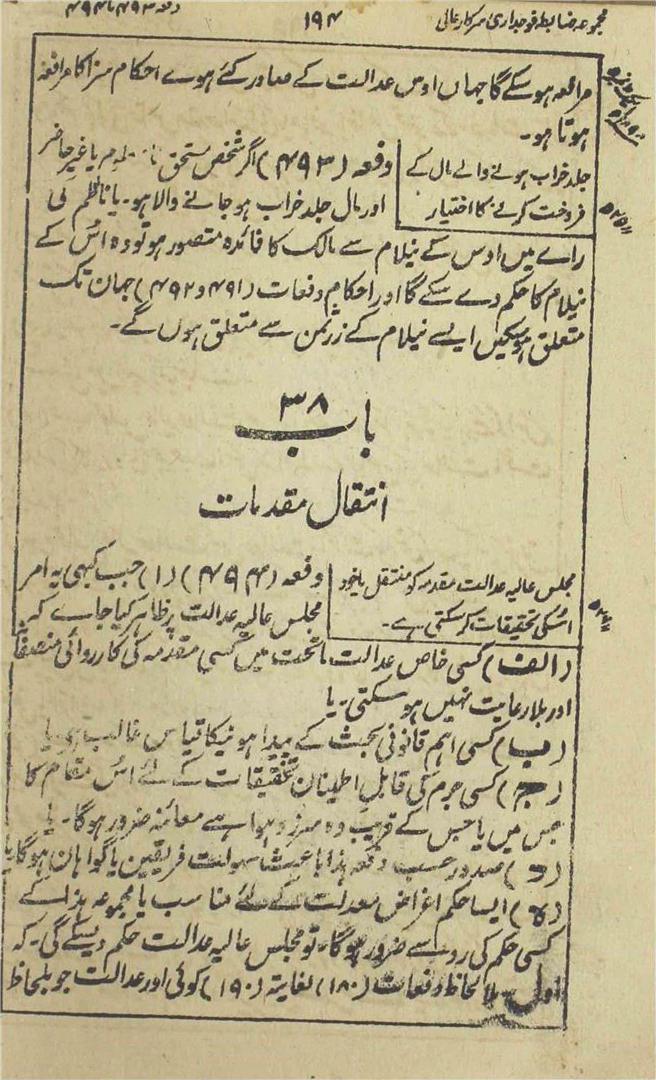 مجموعہ ضابطہ فوجداری سرکارعالی
۱۹۴
دفعہ ۴۹۳ تا ۴۹۴
مرافعہ ہوسکے گا جہاں اوس عدالت کے صادر کئے ہوے احکام سزا کا مرافعہ
ہوتا ہو۔
جلد خراب ہونے والے مال کے
فروخت کرنے کا اختیار
دفعہ (۴۹۳) اگر شخص مستحق نامعلوم یا غیر حاضر
اور مال جلد خراب ہوجانے والا ہو۔ یا ناظم کی
راے میں اوس کے نیلام سے مالک کا فائدہ متصور ہو تو وہ اُس کے
نیلام کا حکم دے سکے گا اور احکام دفعات (۴۹۱ و ۴۹۲) جہان تک
متعلق ہوسکیں ایسے نیلام کے زرثمن سے متعلق ہوں گے۔
باب ۳۸
انتقال مقدمات
مجلس عالیہ عدالت مقدمہ کو منتقل یا خود
اسکی تحقیقات کرسکتی ہے۔
دفعہ (۴۹۴) (۱) جب کبھی یہ امر
مجلس عالیہ عدالت پر ظاہر کیا جاے کہ
(الف) کسی خاص عدالت ماتحت میں کسی مقدمہ کی کارروائی منصفانہ
اور بلا رعایت نہیں ہوسکتی۔ یا
(ب) کسی اہم قانونی بحث کے پیدا ہونیکا قیاس غالب ہے۔ یا
(ج) کسی جرم کی قابل اطینان تحقیقات کے لئے اُس مقام کا
جس میں یا جس کے قریب وہ سرزد ہوا ہے معائنہ ضرور ہوگا۔ یا
(د) صدور حسب دفعہ ہذا باعث سہولت فریقین یا گواہان ہوگا یا
(ہ) ایسا حکم اغراض معدلت کے لئے مناسب یا مجموعہ ہذا کے
کسی حکم کی رو سے ضرور ہوگا۔ تو مجلس عالیہ عدالت حکم دیسکے گی۔ کہ
اول۔ بلا لحاظ دفعات (۱۸۰) لغایتہ (۱۹۰) کوئی اور عدالت جو بلحاظ